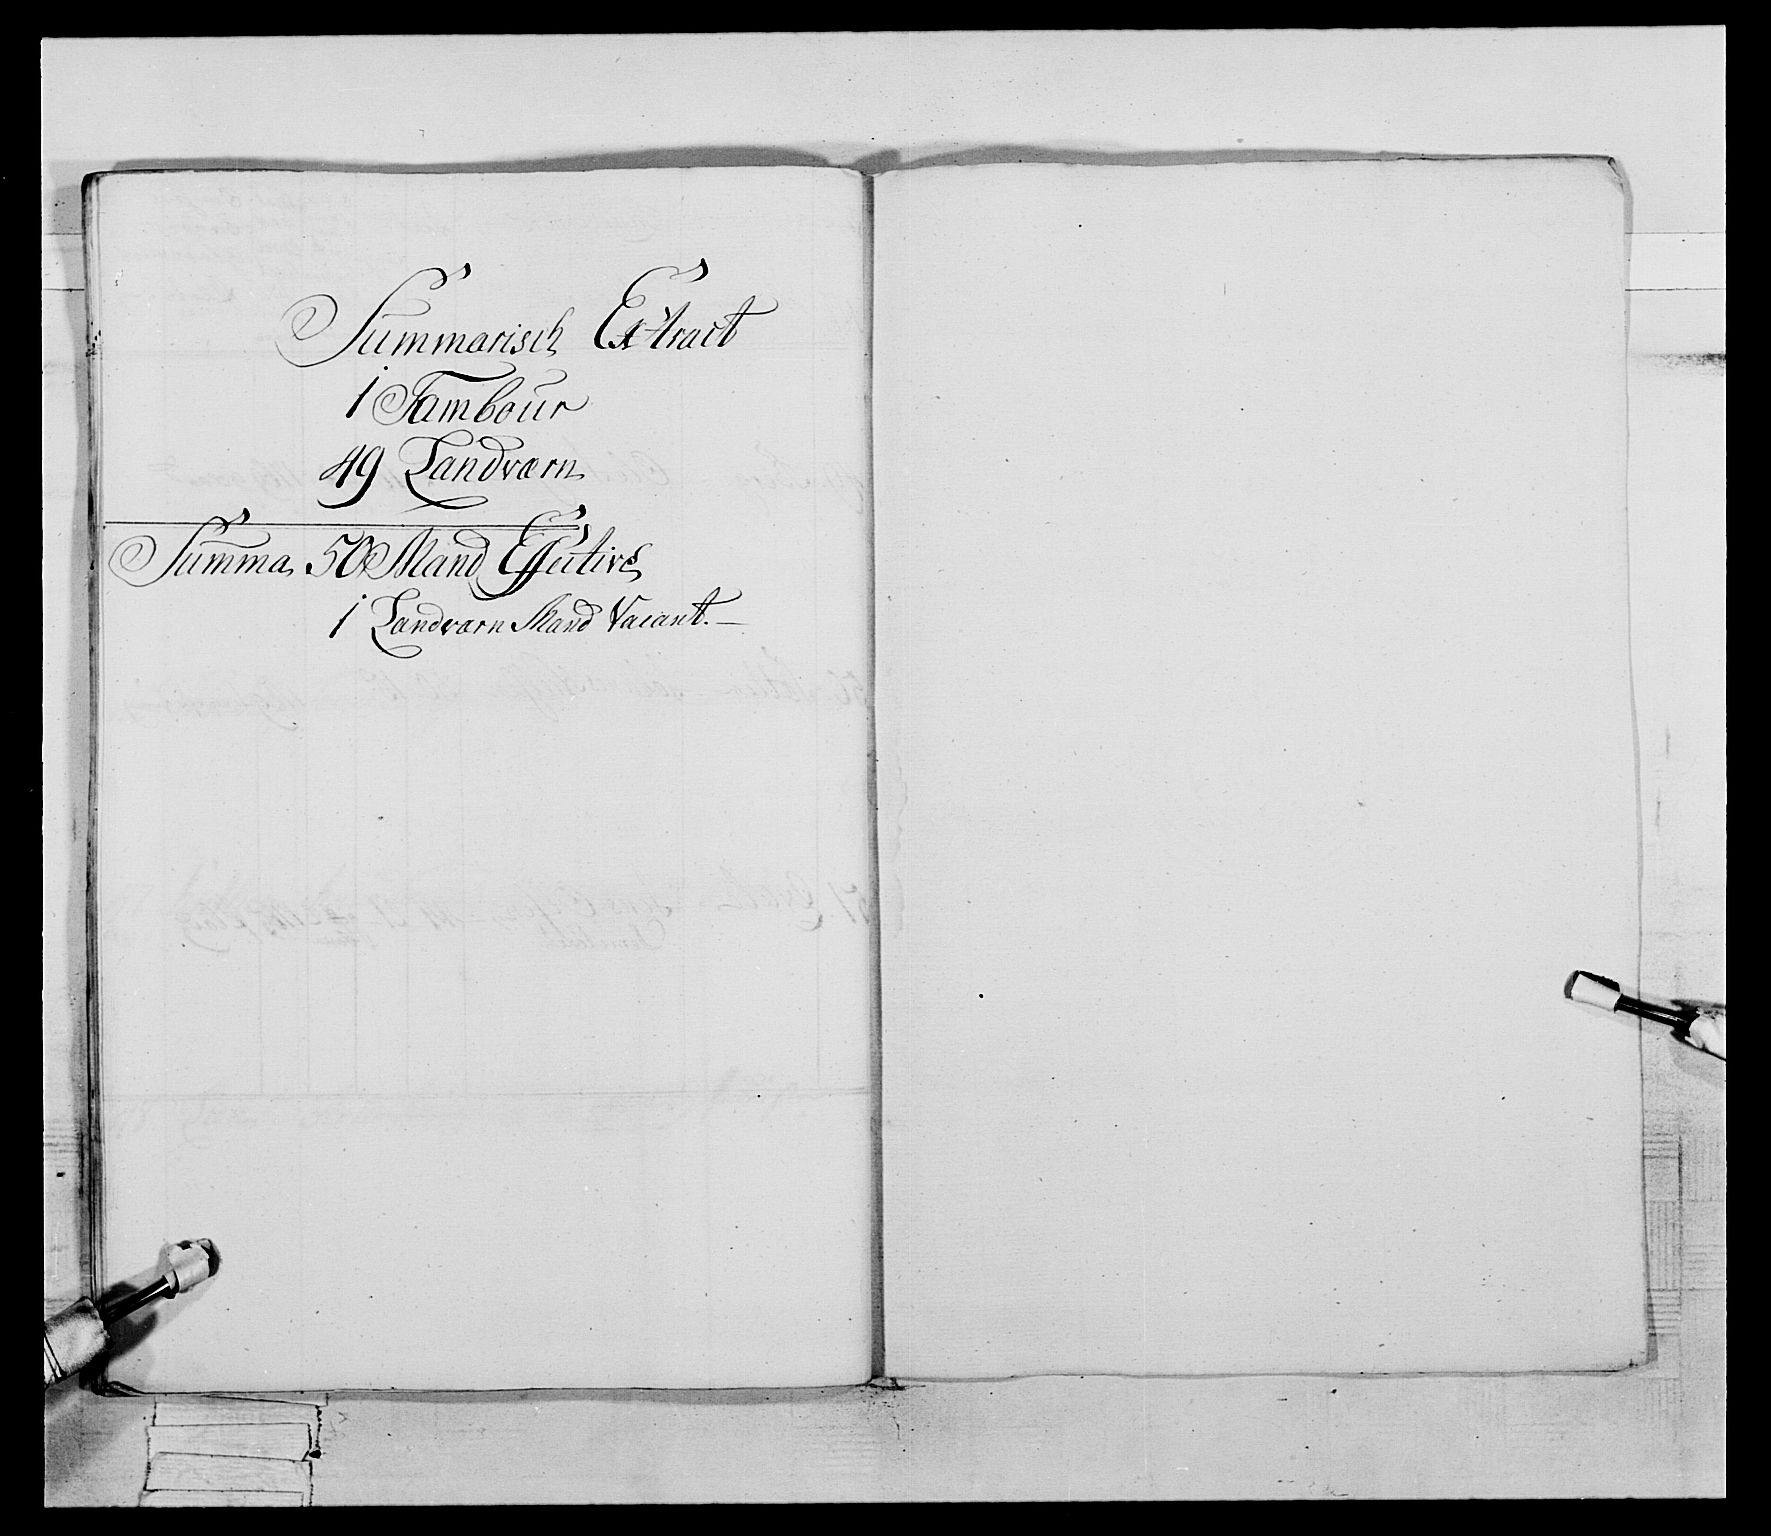 Summarisch Extract
1 Tambour
49 Landværn
Summa 50 Mand Effective
1 Landværn Mand Vacant.